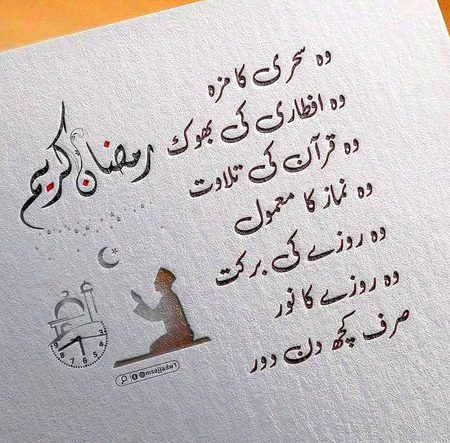 وہ سحری کا مزہ
وہ افطاری کی بھوک
وہ قرآن کی تلاوت
وہ نماز کا معمول
وہ روزے کی برکت
وہ روزے کا نور
صرف کچھ دن دور
رمضان کریم
9 8 7 6 5 4 3
@msajjadw1